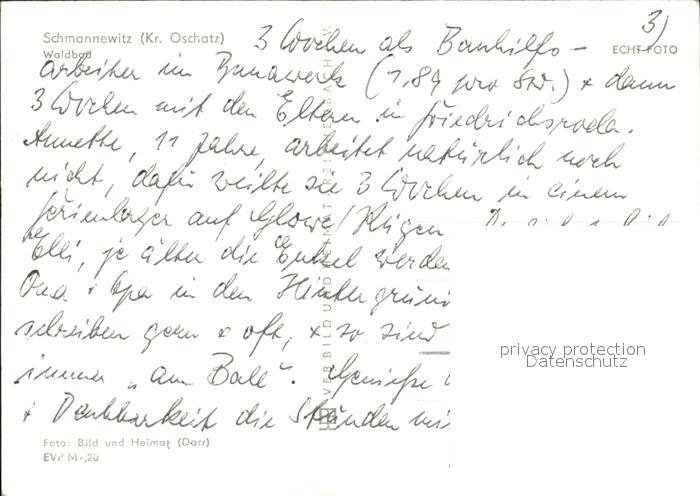 3)
Schmannewitz (Kr. Oschatz)
Waldbad
ECHT FOTO
3 Wochen als Bauhilfs-
arbeiter im Bunawerk (1,89 pro Std.) + dann
3 Wochen mit den Eltern in Friedrichsroda.
Annette, 11 Jahre, arbeitet natürlich noch
nicht, dafür weilte sie 3 Wochen in einem
Ferienlager auf Glowe/Rügen.
Elli, je älter die Enkel werden
Oma + Opa in den Hintergrund
schreiben gern + oft, + so sind
immer "am Ball". Genieße
+ Dankbarkeit die Stunden mi
VERB BILD UND HEIMAT REICHENBACH I. V.
privacy protection
Datenschutz
Foto: Bild und Heimat (Darr)
EVP M -,20